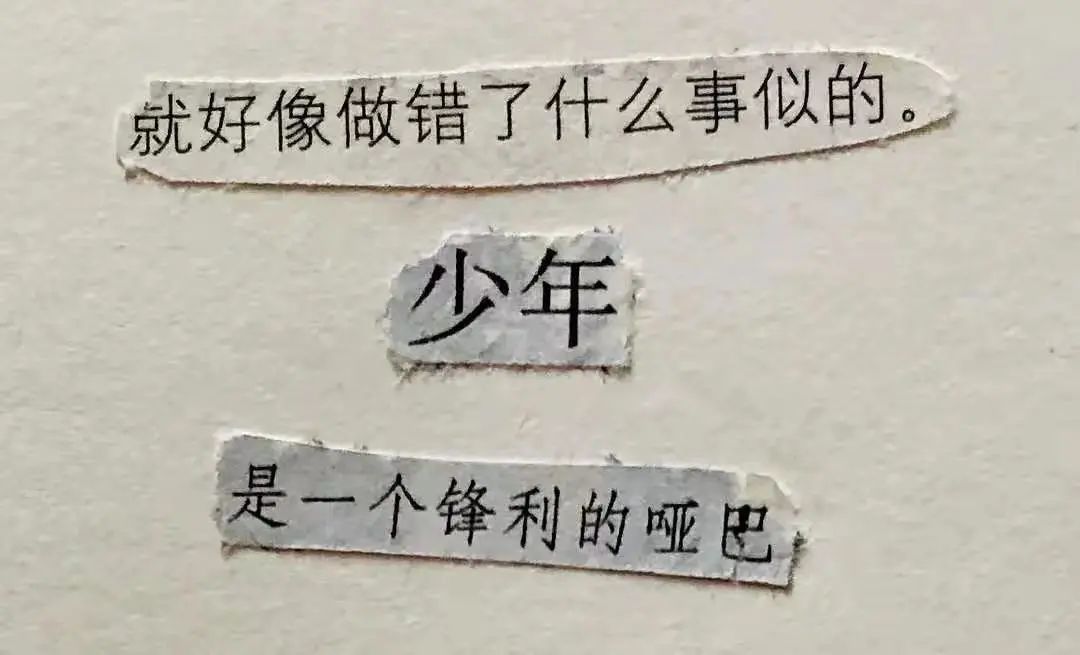 就好像做错了什么事似的。
少年
是一个锋利的哑巴